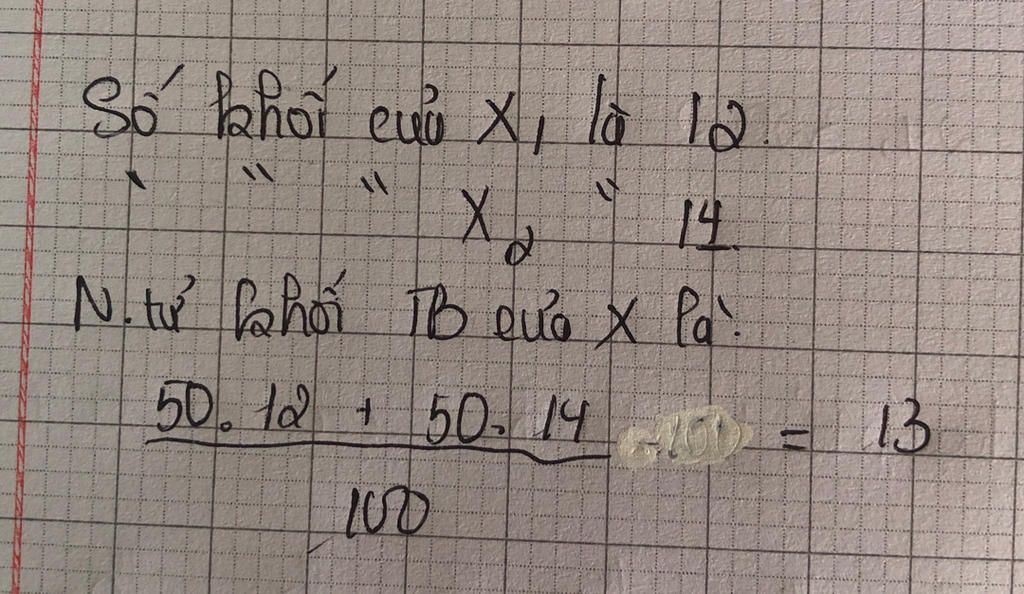 Số khối của X₁ là 12.
" " " X₂ " 14.
N.tử khối TB của X là:
50.12 + 50.14 = 13
100